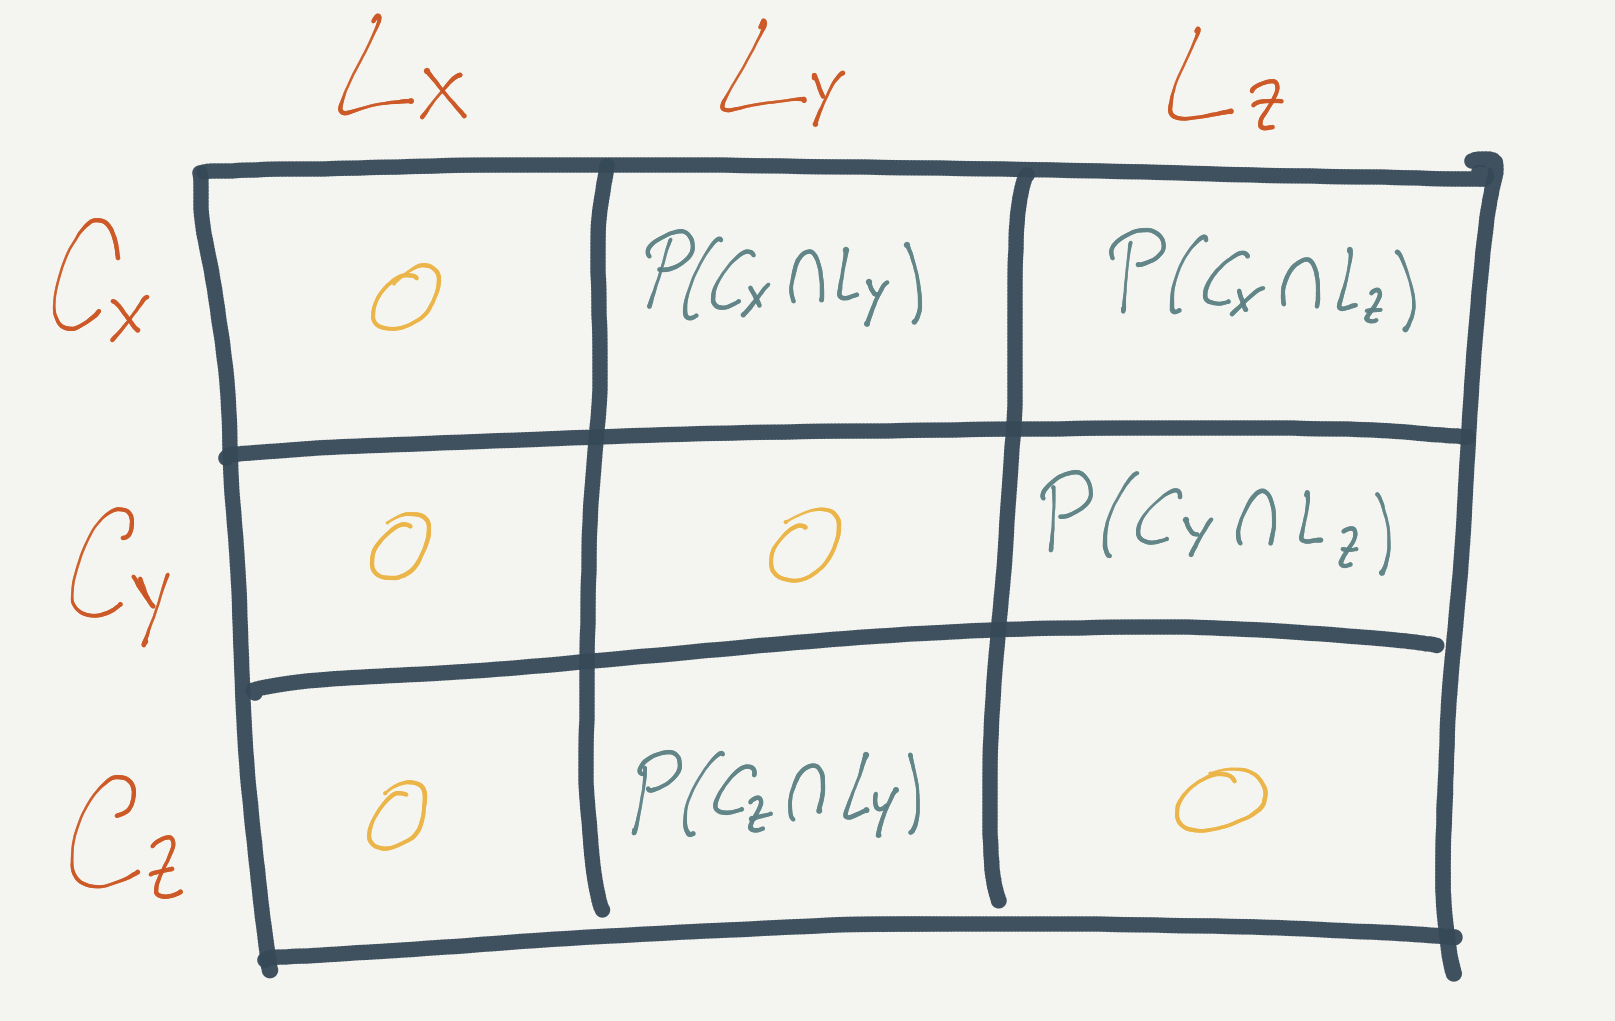 Lx Ly Lz
Cx 0 P(Cx∩Ly) P(Cx∩Lz)
Cy 0 0 P(Cy∩Lz)
Cz 0 P(Cz∩Ly) 0